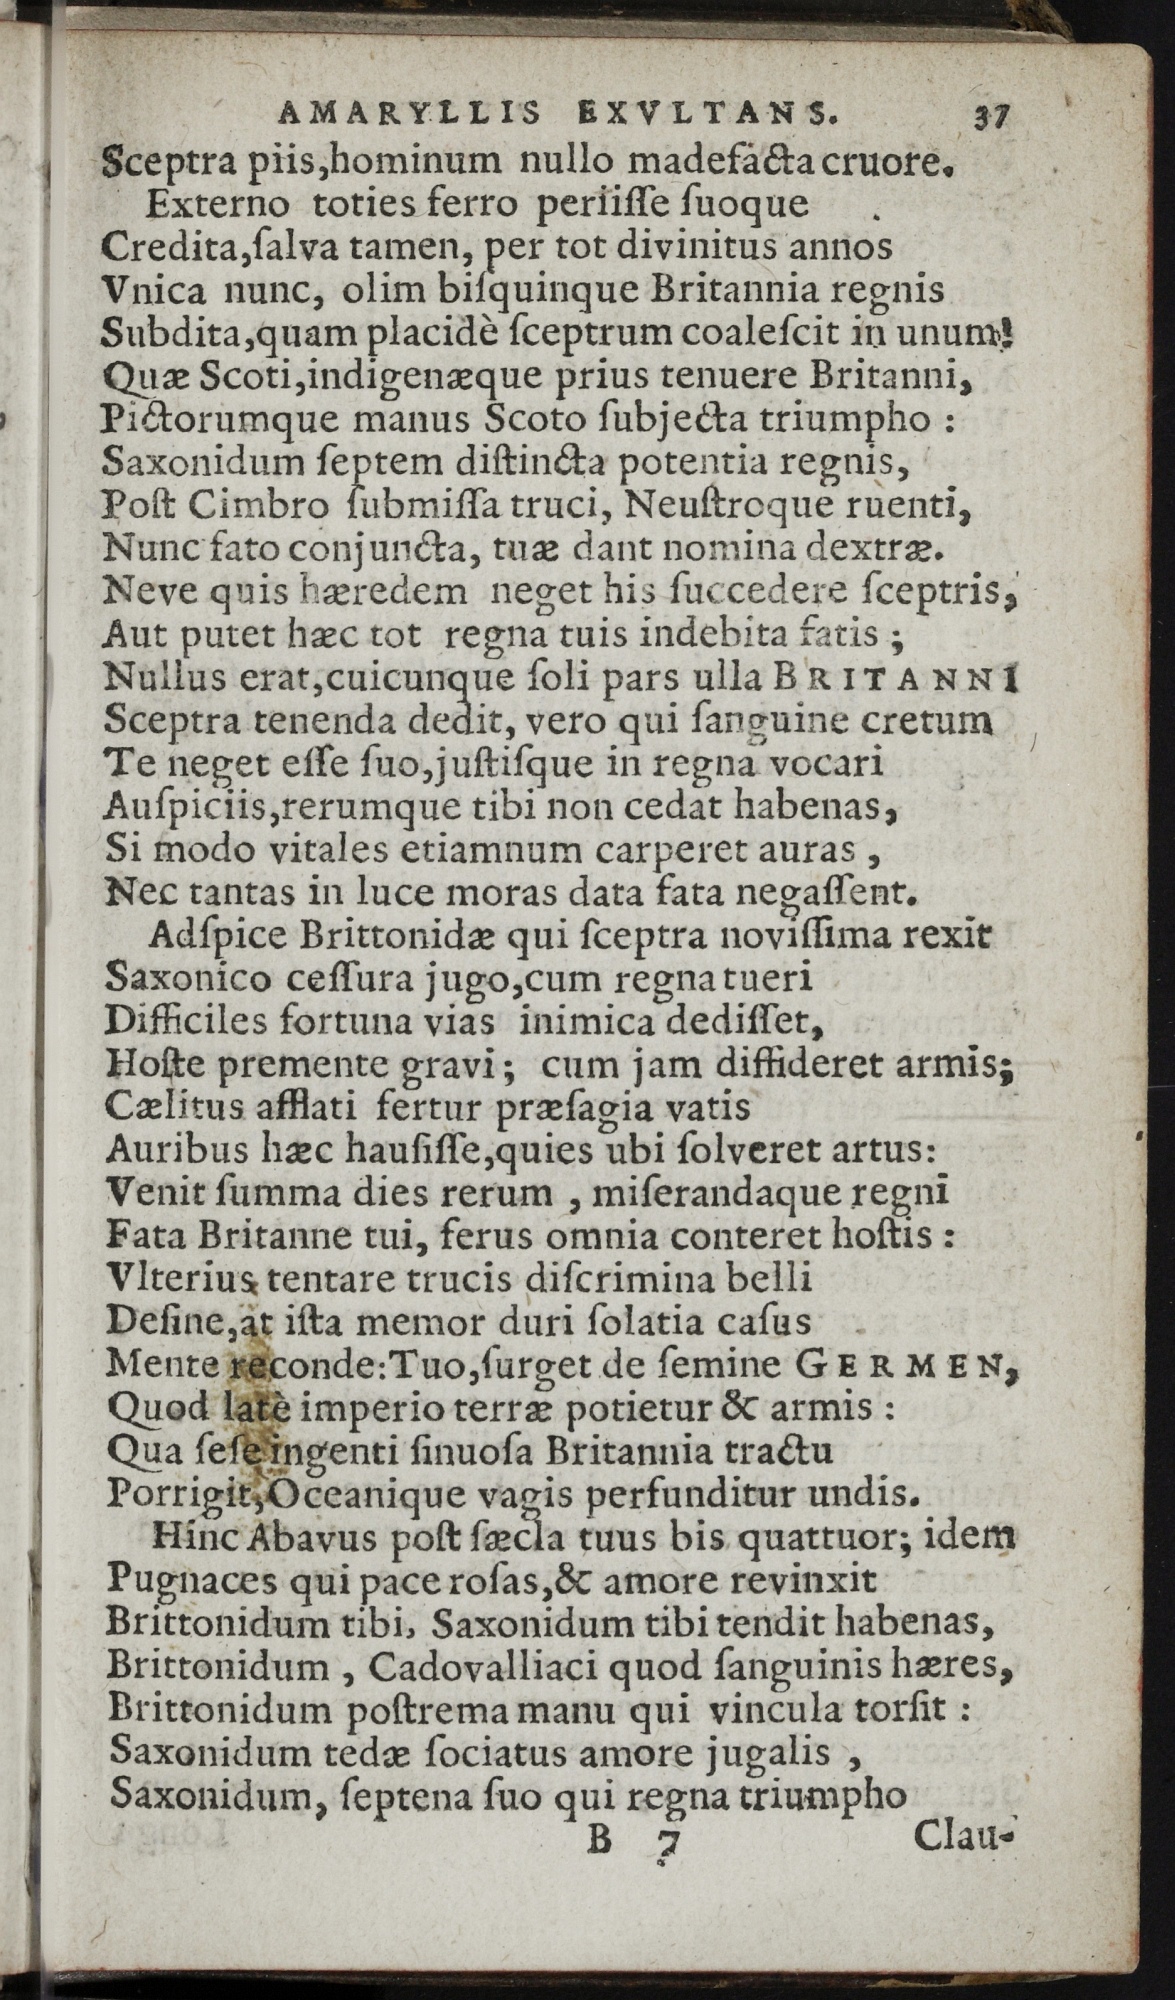 AMARYLLIS EXVLTANS. 37
Sceptra piis,hominum nullo madefacta cruore.
Externo toties ferro periisse suoque
Credita,ſalva tamen, per tot divinitus annos
Vnica nunc, olim biſquinque Britannia regnis
Subdita,quam placidè ſceptrum coaleſcit in unum!
Quæ Scoti,indigenæque prius tenuere Britanni,
Pictorumque manus Scoto ſubjecta triumpho :
Saxonidum ſeptem diſtincta potentia regnis,
Poſt Cimbro ſubmiſſa truci, Neuſtroque ruenti,
Nunc fato conjuncta, tuæ dant nomina dextræ.
Neve quis hæredem neget his ſuccedere ſceptris,
Aut putet hæc tot regna tuis indebita fatis ;
Nullus erat,cuicunque ſoli pars ulla BRITANNI
Sceptra tenenda dedit, vero qui ſanguine cretum
Te neget eſſe ſuo,juſtiſque in regna vocari
Auſpiciis,rerumque tibi non cedat habenas,
Si modo vitales etiamnum carperet auras ,
Nec tantas in luce moras data fata negaſſent.
Adſpice Brittonidæ qui ſceptra noviſſima rexit
Saxonico ceſſura jugo,cum regna tueri
Difficiles fortuna vias inimica dediſſet,
Hoſte premente gravi; cum jam diffideret armis;
Cælitus afflati fertur præſagia vatis
Auribus hæc hauſiſſe,quies ubi ſolveret artus:
Venit ſumma dies rerum , miſerandaque regni
Fata Britanne tui, ferus omnia conteret hoſtis :
Vlterius tentare trucis diſcrimina belli
Deſine,at iſta memor duri ſolatia caſus
Mente reconde:Tuo,ſurget de ſemine GERMEN,
Quod latè imperio terræ potietur & armis :
Qua ſeſe ingenti ſinuoſa Britannia tractu
Porrigit,Oceanique vagis perfunditur undis.
Hinc Abavus poſt ſæcla tuus bis quattuor; idem
Pugnaces qui pace roſas,& amore revinxit
Brittonidum tibi, Saxonidum tibi tendit habenas,
Brittonidum , Cadovalliaci quod ſanguinis hæres,
Brittonidum poſtrema manu qui vincula torſit :
Saxonidum tedæ ſociatus amore jugalis ,
Saxonidum, ſeptena ſuo qui regna triumpho
B 7 Clau-